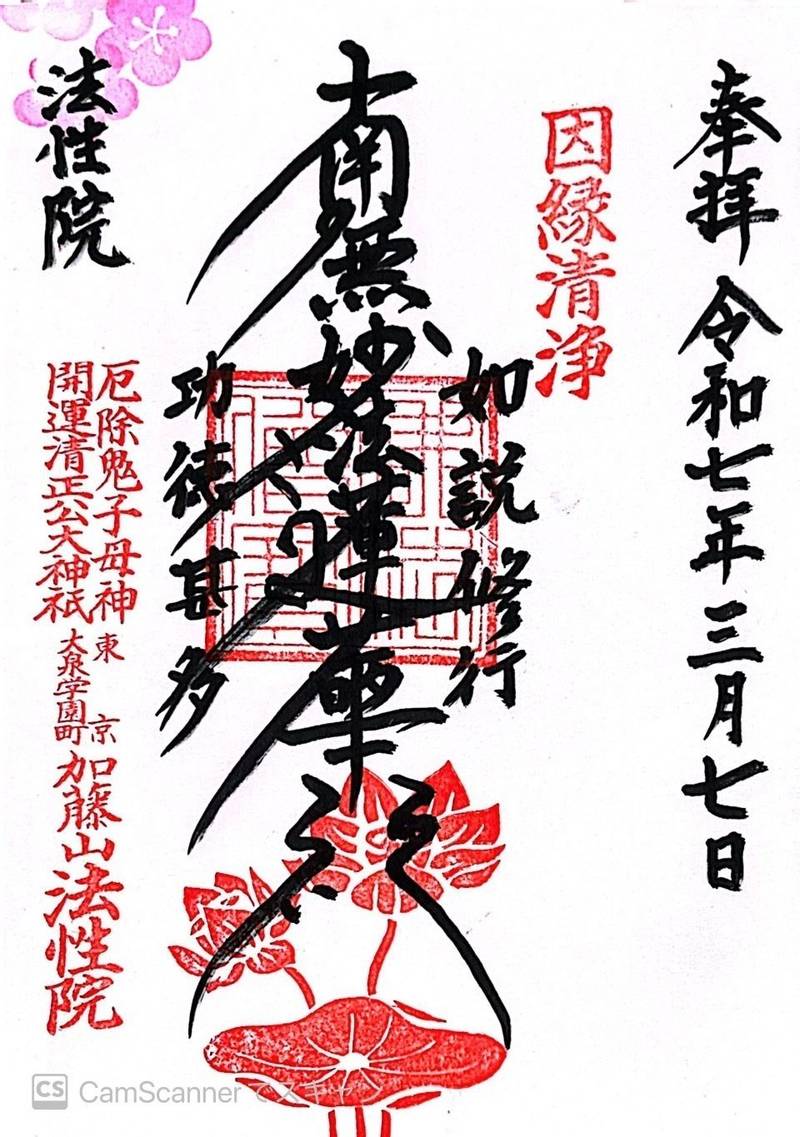 奉拝 令和七年三月七日
因縁清浄
如説修行
南無妙法蓮華経
功徳甚多
法性院
厄除鬼子母神
開運清正公大神祇
東京
大泉学園町
加藤山法性院
CS CamScanner でスキャン